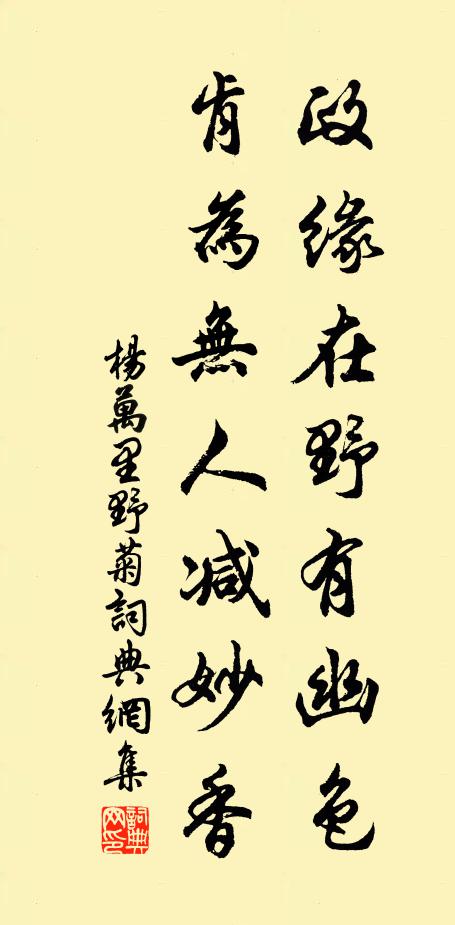 政緣在野有幽色
肯為無人减妙香
楊萬里野菊詞典網集
詞典網印